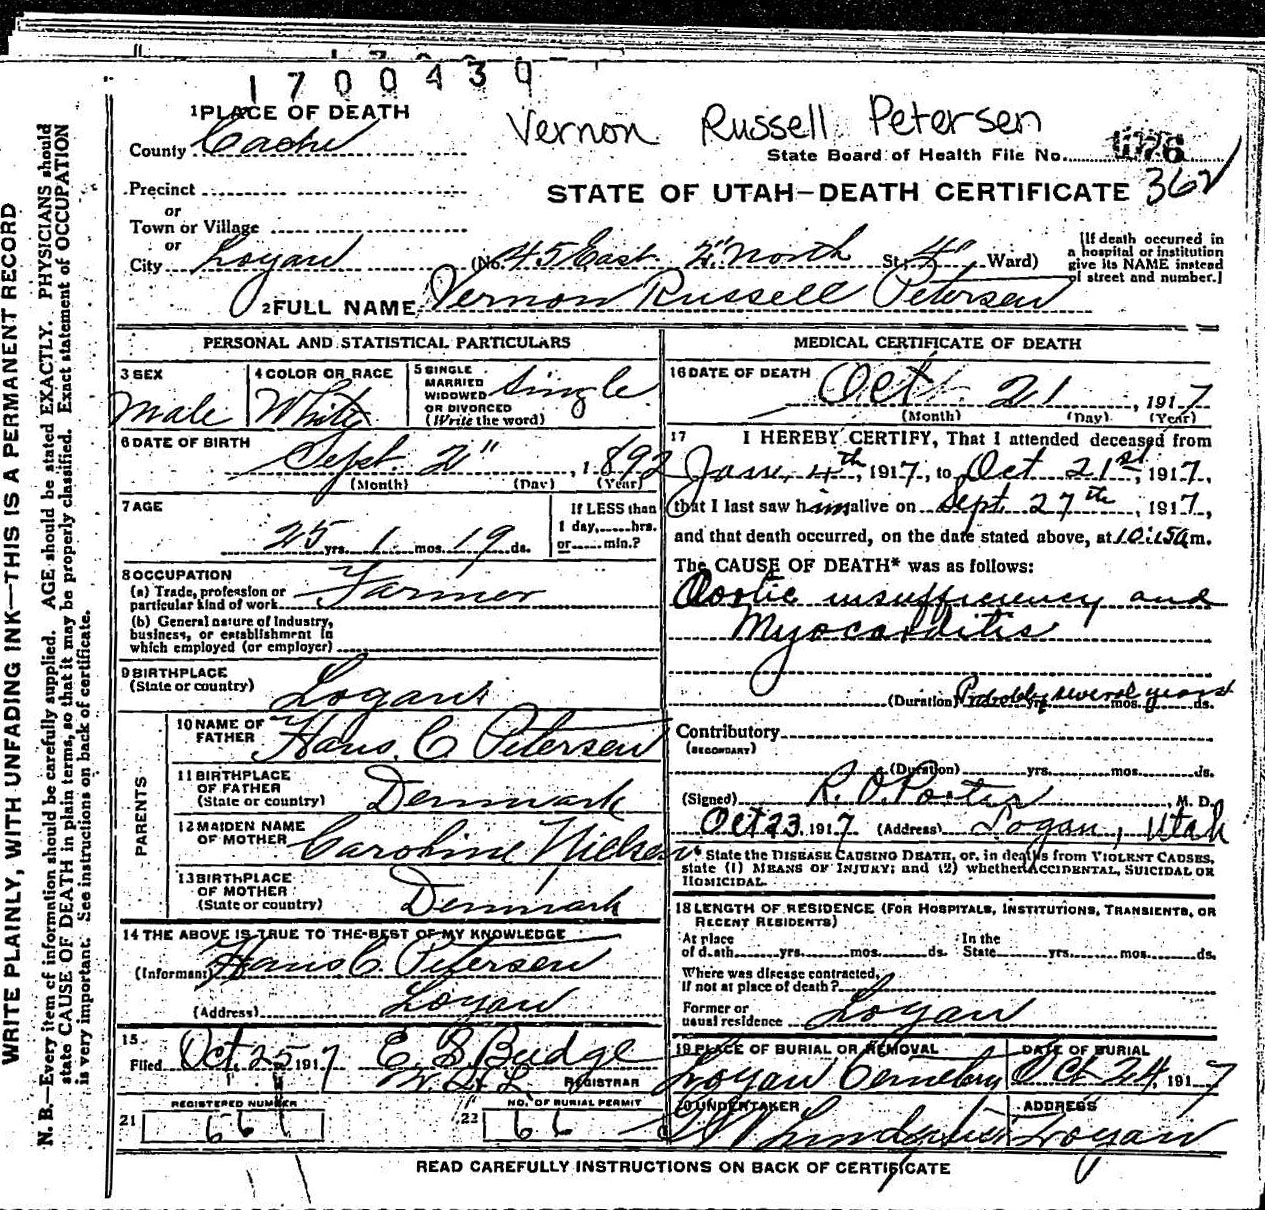 1700439
1 PLACE OF DEATH
Vernon Russell Petersen
County Cache
State Board of Health File No.
Precinct
STATE OF UTAH—DEATH CERTIFICATE 362
or
Town or Village
or
City Logan (No. 45 East 2" North St.; 4" Ward)
[If death occurred in
a hospital or institution
give its NAME instead
of street and number.]
2 FULL NAME Vernon Russell Petersen
PERSONAL AND STATISTICAL PARTICULARS
3 SEX
Male
4 COLOR OR RACE
White
5 SINGLE
MARRIED
WIDOWED
OR DIVORCED
(Write the word)
Single
6 DATE OF BIRTH
Sept. 2", 1892
(Month) (Day) (Year)
7 AGE
25 yrs. 1 mos. 19 ds.
If LESS than
1 day,......hrs.
or......min.?
8 OCCUPATION
(a) Trade, profession or
particular kind of work Farmer
(b) General nature of Industry,
business, or establishment in
which employed (or employer)
9 BIRTHPLACE
(State or country) Logan
PARENTS
10 NAME OF
FATHER Hans. C Petersen
11 BIRTHPLACE
OF FATHER
(State or country) Denmark
12 MAIDEN NAME
OF MOTHER Caroline Nielsen
13 BIRTHPLACE
OF MOTHER
(State or country) Denmark
14 THE ABOVE IS TRUE TO THE BEST OF MY KNOWLEDGE
(Informant) Hans C. Petersen
(Address) Logan
15
Filed Oct. 25 1917 E. S. Budge
REGISTRAR
REGISTERED NUMBER
21 66
NO. OF BURIAL PERMIT
22 66
MEDICAL CERTIFICATE OF DEATH
16 DATE OF DEATH Oct 21, 1917
(Month) (Day) (Year)
17 I HEREBY CERTIFY, That I attended deceased from
Jan. 4th, 1917, to Oct 21st, 1917,
that I last saw him alive on Sept 27th, 1917,
and that death occurred, on the date stated above, at 10:15 a m.
The CAUSE OF DEATH* was as follows:
Aortic insufficiency and
Myocarditis
(Duration) Probably several years yrs. mos. ds.
Contributory
(SECONDARY)
(Duration) yrs. mos. ds.
(Signed) R. O. Porter, M. D.
Oct 23, 1917 (Address) Logan, Utah
* State the DISEASE CAUSING DEATH, or, in deaths from VIOLENT CAUSES,
state (1) MEANS OF INJURY; and (2) whether ACCIDENTAL, SUICIDAL OR
HOMICIDAL.
18 LENGTH OF RESIDENCE (FOR HOSPITALS, INSTITUTIONS, TRANSIENTS, OR
RECENT RESIDENTS)
At place
of death yrs. mos. ds.
In the
State yrs. mos. ds.
Where was disease contracted,
If not at place of death?
Former or
usual residence Logan
19 PLACE OF BURIAL OR REMOVAL
Logan Cemetery
DATE OF BURIAL
Oct 24, 1917
20 UNDERTAKER
Lindquist
ADDRESS
Logan
READ CAREFULLY INSTRUCTIONS ON BACK OF CERTIFICATE
WRITE PLAINLY, WITH UNFADING INK—THIS IS A PERMANENT RECORD
N. B.—Every item of information should be carefully supplied. AGE should be stated EXACTLY. PHYSICIANS should
state CAUSE OF DEATH in plain terms, so that it may be properly classified. Exact statement of OCCUPATION
is very important. See instructions on back of certificate.